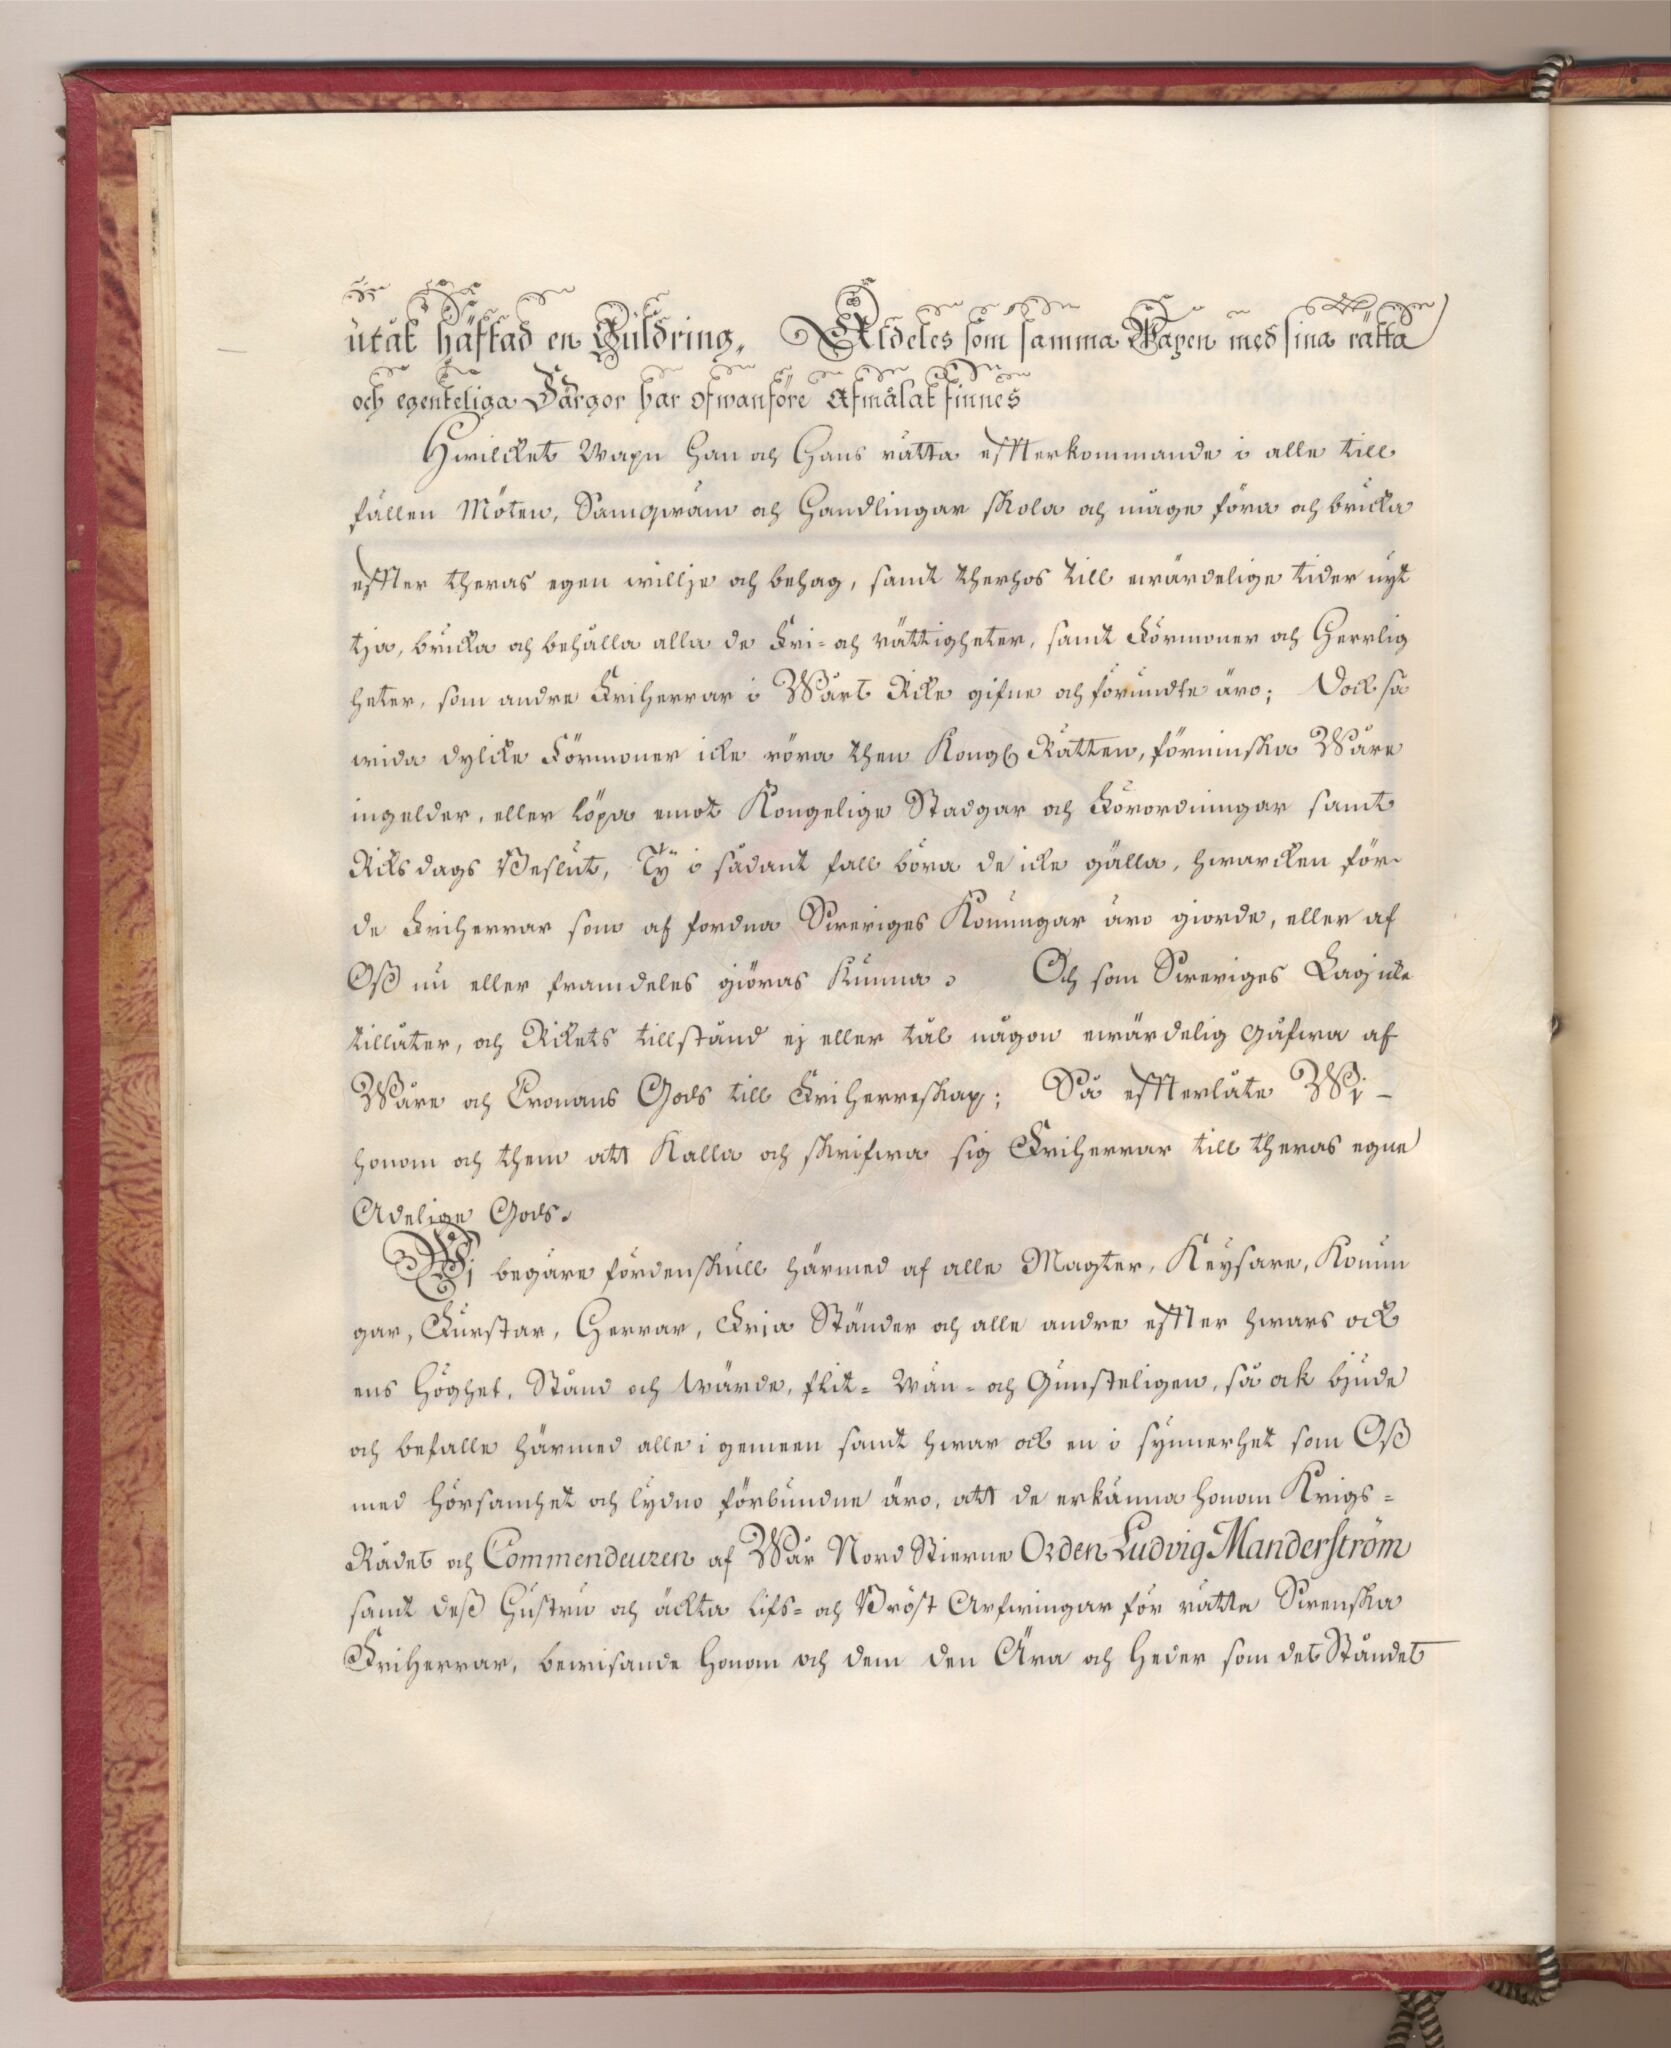 utåt häftad en Guldring. Aldeles som samma Wapen med sina rätta
och egenteliga Färgor här ofwanföre Afmålat finnes
Hwilcket Wapn Han och Hans rätta effterkommande i alle till
fällen Möten, Samqwäm och Handlingar skola och måge föra och brucka
effter theras egen willje och behag, samt therhos till ewärdelige tider nyt
tja, brucka och behålla alla de Fri- och rättigheter, samt Förmoner och Herrlig
heter, som andre FriHerrar i Wårt Rike gifne och förundte äro; Dock så
wida dylike Förmoner icke röra then Kongl Rätten, förminska Wåre
ingelder, eller löpa emot Kongelige Stadgar och Förordningar samt
Riksdags Beslut, Ty i sådant fall böra de icke gälla, hwarcken för
de Friherrar som af fordna Sweriges Konungar äro giorde, eller af
Oß nu eller framdeles giöras kunna. Och som Sweriges Lag icke
tillåter, och Rikets tillstånd ej eller tål någon ewärdelig gåfwa af
Wåre och Cronans Gods till FriHerreskap; Så effterlåte Wj
honom och them att Kalla och skrifwa sig Friherrar till theras egne
Adelige Gods.
Wj begäre fördenskull härmed af alle Magter, Keysare, Konun
gar, Furstar, Herrar, Fria Ständer och alle andre effter hwars och
ens Höghet, Stånd och Wärde, flit- Wän- och Gunsteligen, så ock bjude
och befalle härmed alle i gemeen samt hwar och en i synnerhet som Oß
med hörsamhet och lydno förbundne äro, att de erkänna honom Krigs-
Rådet och Commendeuren af Wår Nord Stierne Orden Ludvig Manderström
samt deß Hustru och äckta Lifs- och Bröst Arfwingar för rätta Swenska
Friherrar, bewisande Honom och dem den Ära och Heder som det Ståndet